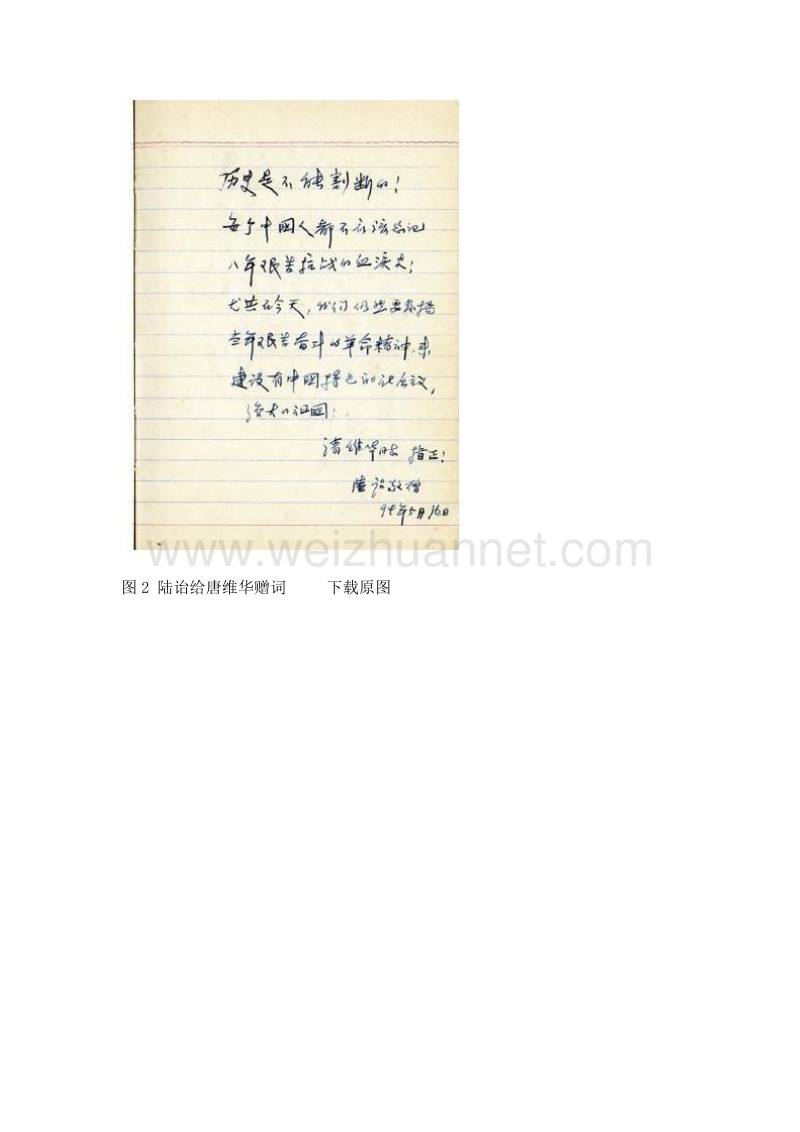 历史是不能割断的！
每个中国人都不应该忘记
八年艰苦抗战的血泪史；
尤其在今天，我们仍然要发扬
当年艰苦奋斗的革命精神，来
建设有中国特色的社会主义，
强大的祖国！
请维华同志 指正！
陆诒敬赠
94年5月16日
www.weizhuannet.com
图2 陆诒给唐维华赠词 下载原图